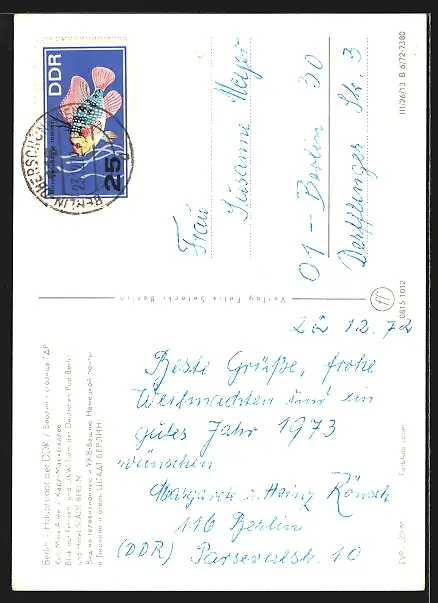 DDR
25
BERLIN
Frau
Susanne Meyer
01 – Berlin 30
Derfflinger Str. 3
III/26/13 B 6/72-7380
0815 1012
Verlag Felix Setecki Berlin
22 12. 72
Beste Grüße, frohe
Weihnachten und ein
gutes Jahr 1973
wünschen
Margarete u. Heinz Rönsch
116 Berlin
(DDR) Parsevalstr. 10
Berlin - Hauptstadt der DDR / Берлин - столица ГДР
Karl-Marx-Allee / Карл-Маркс-аллее
Blick auf Fernseh- und UKW-Turm der Deutschen Post Berlin
und Hotel STADT BERLIN
Вид на телевизионную и УКВ-башню Немецкой почты
в Берлине и отель ШТАДТ БЕРЛИН